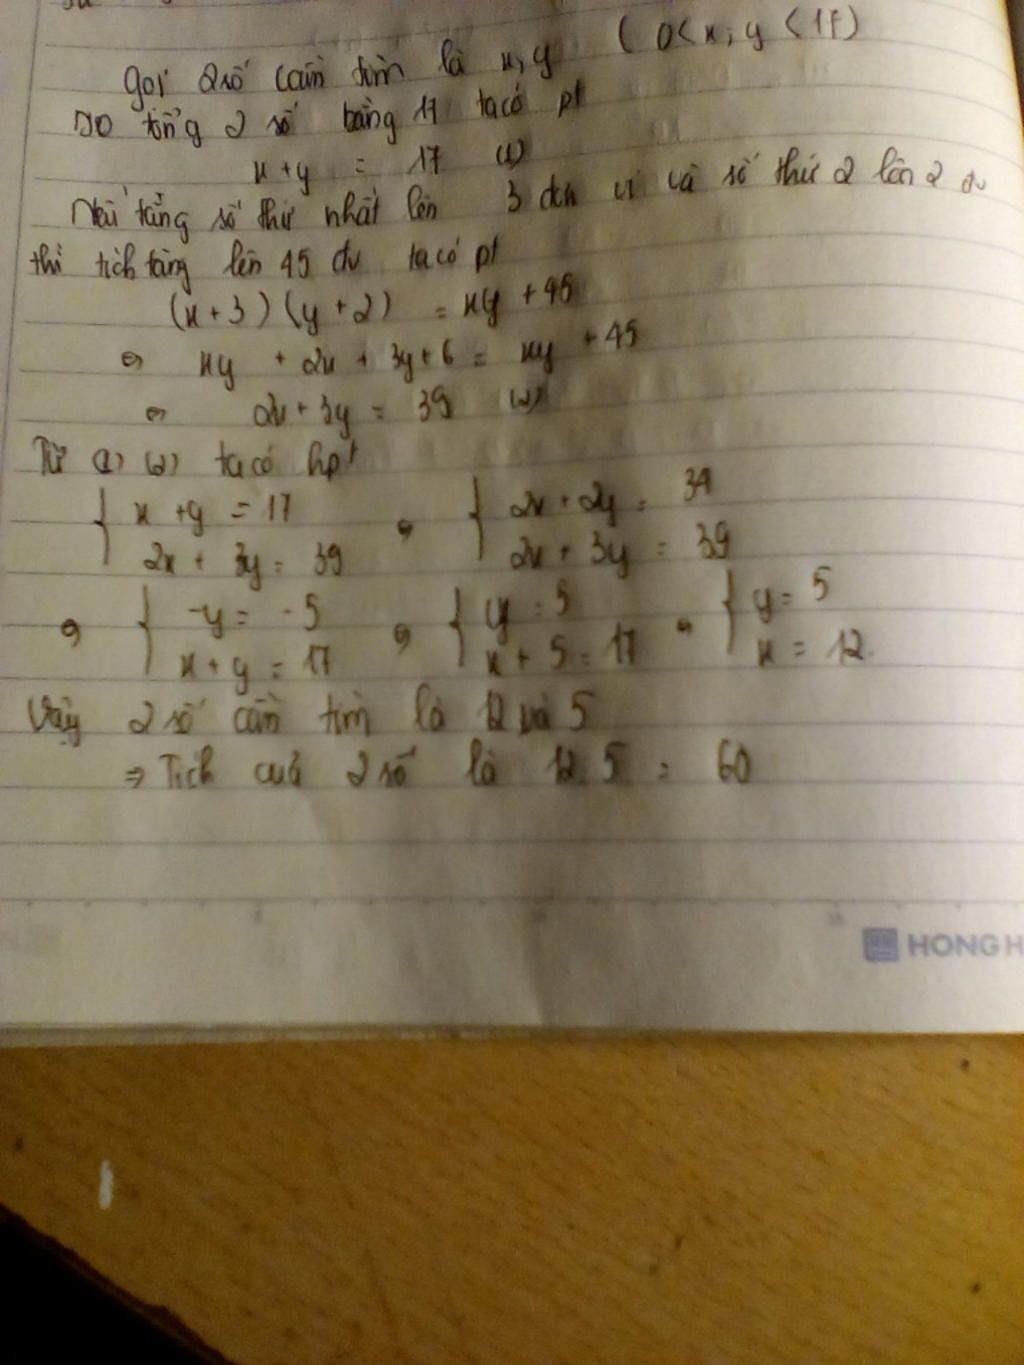 gọi 2 số cần tìm là x, y (0<x; y<17)
Do tổng 2 số bằng 17 ta có pt
x+y = 17 (1)
Nếu tăng số thứ nhất lên 3 đơn vị và số thứ 2 lên 2 đv
thì tích tăng lên 45 đv ta có pt
(x+3)(y+2) = xy +45
⇔ xy + 2x + 3y + 6 = xy + 45
⇔ 2x + 3y = 39 (2)
Từ (1) (2) ta có hpt
{ x + y = 17 ⇔ { 2x + 2y = 34
2x + 3y = 39 2x + 3y = 39
⇔ { -y = -5 ⇔ { y = 5 ⇔ { y = 5
x + y = 17 x + 5 = 17 x = 12.
Vậy 2 số cần tìm là 12 và 5
⇒ Tích của 2 số là 12.5 = 60
HONG H